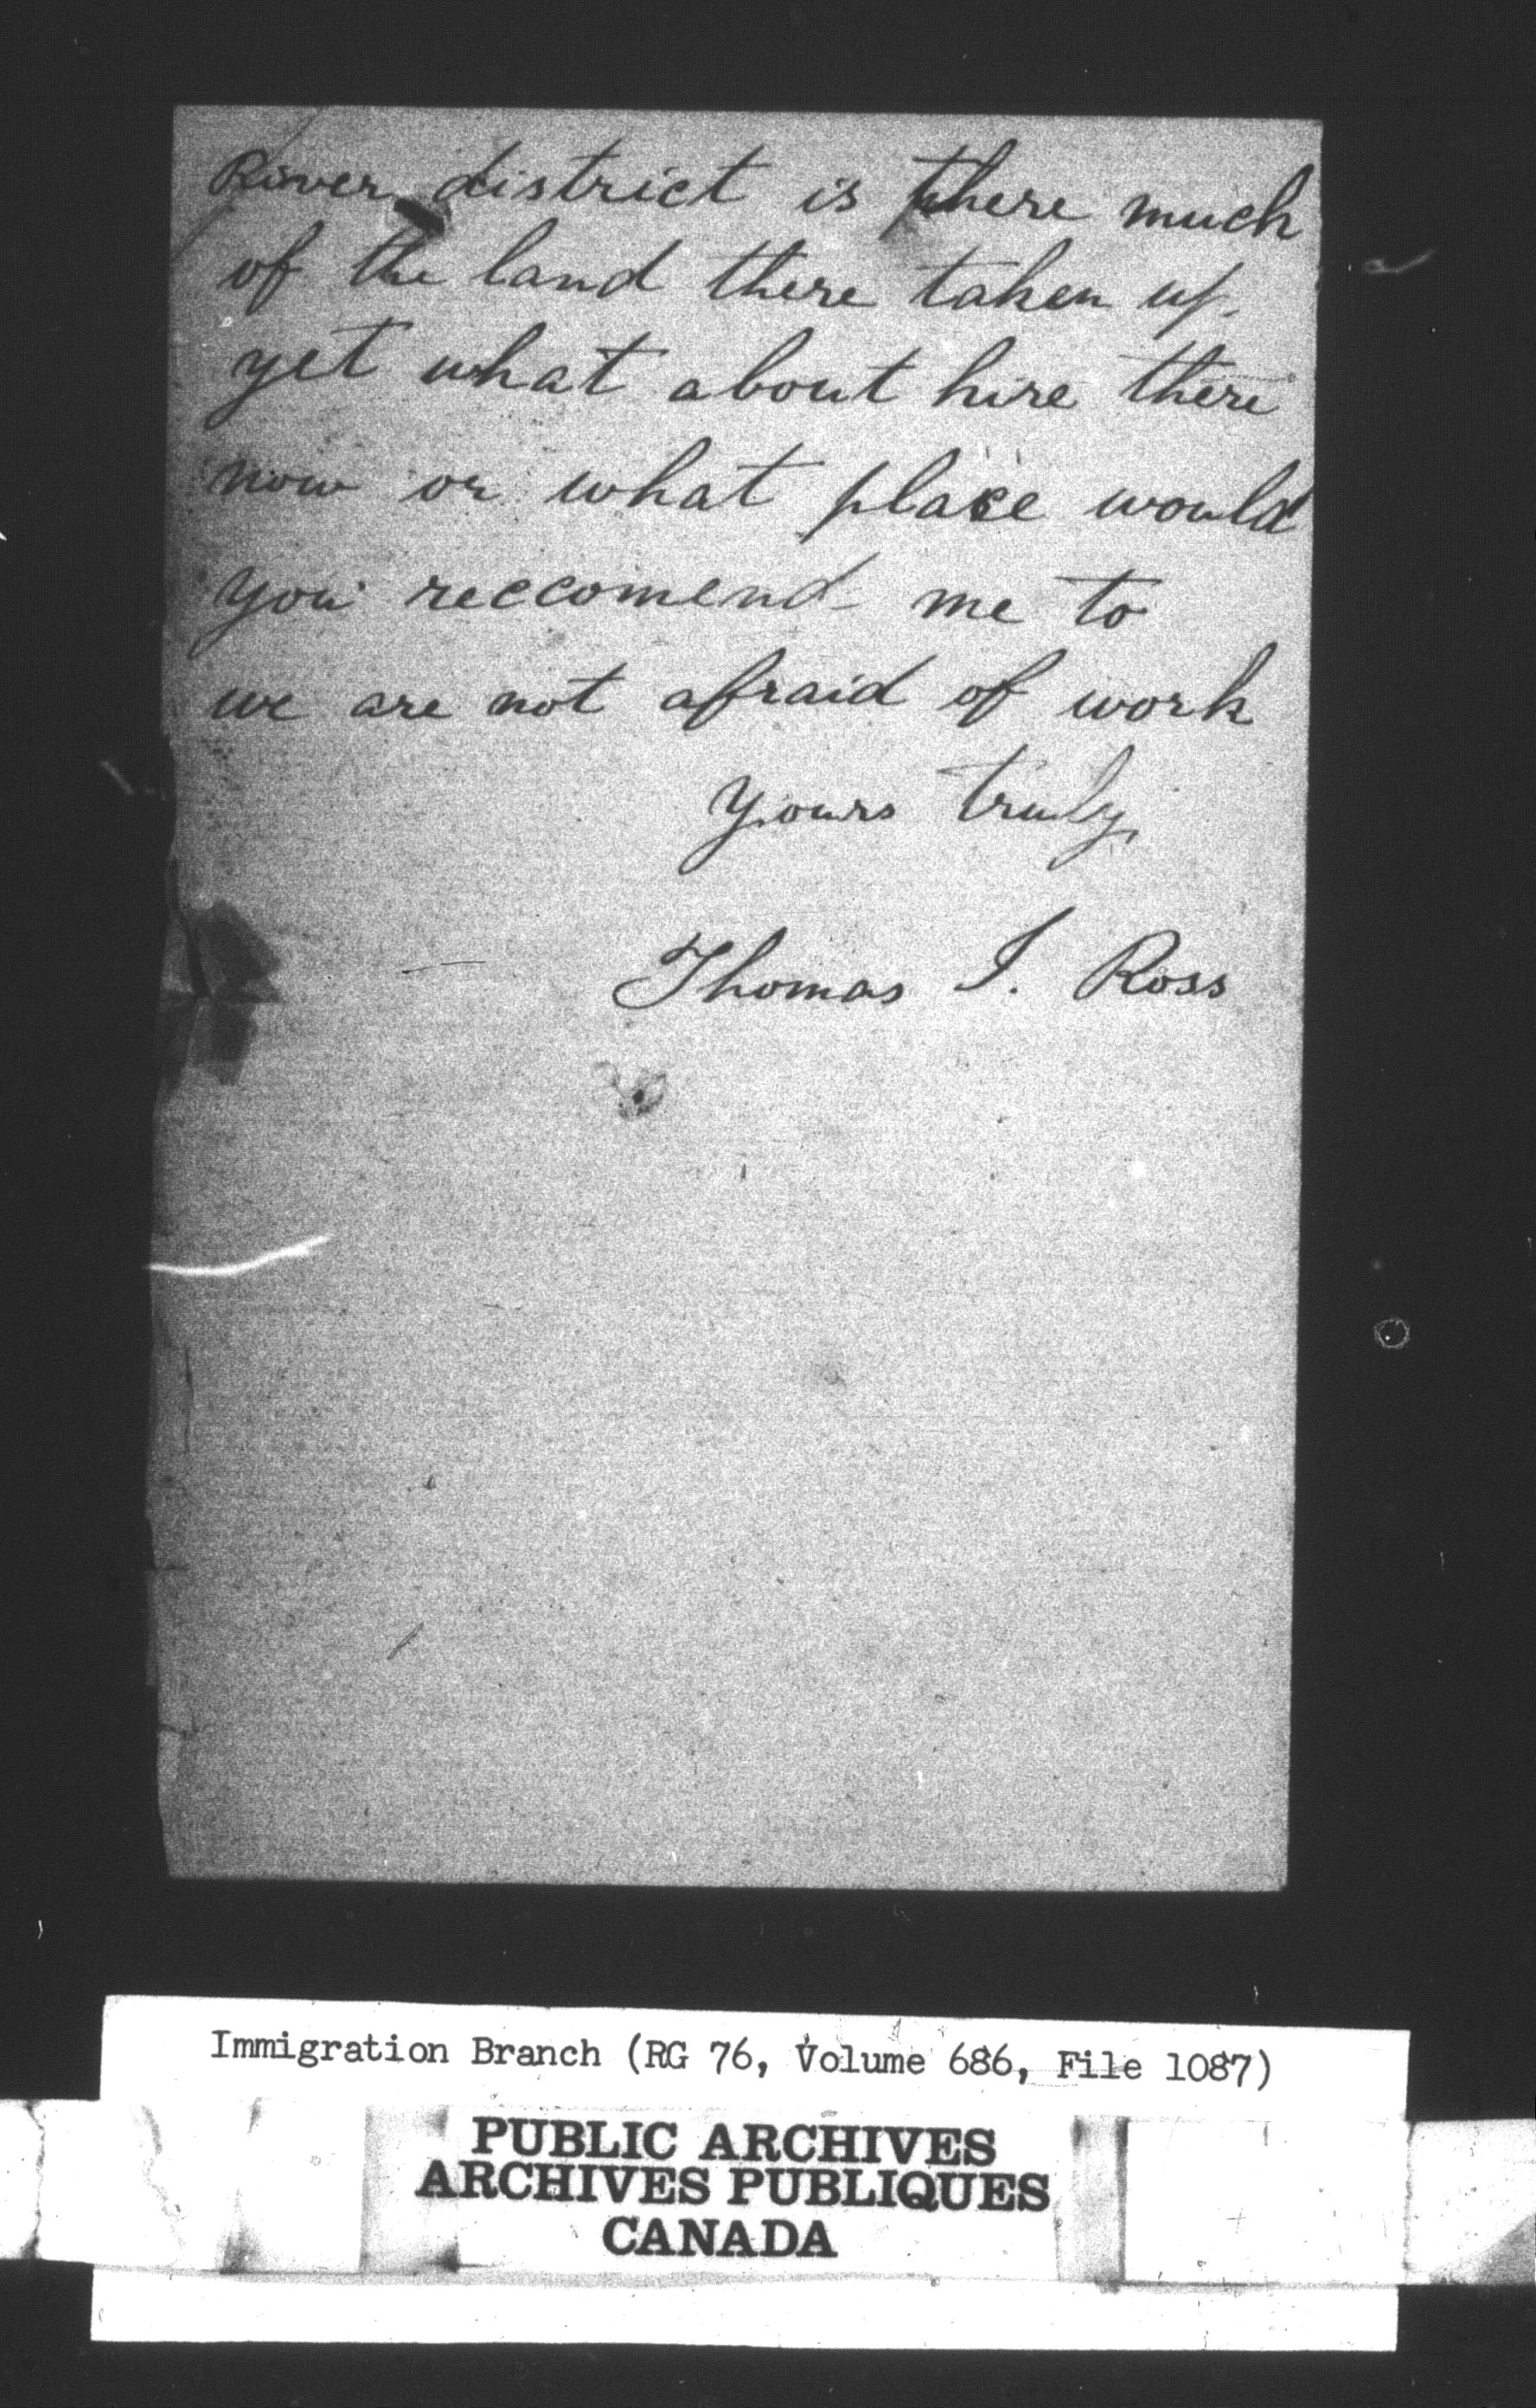 River district is there much
of the land there taken up.
yet what about hire there
now or what place would
you reccomend me to
we are not afraid of work
Yours truly,
Thomas I. Ross
Immigration Branch (RG 76, Volume 686, File 1087)
PUBLIC ARCHIVES
ARCHIVES PUBLIQUES
CANADA